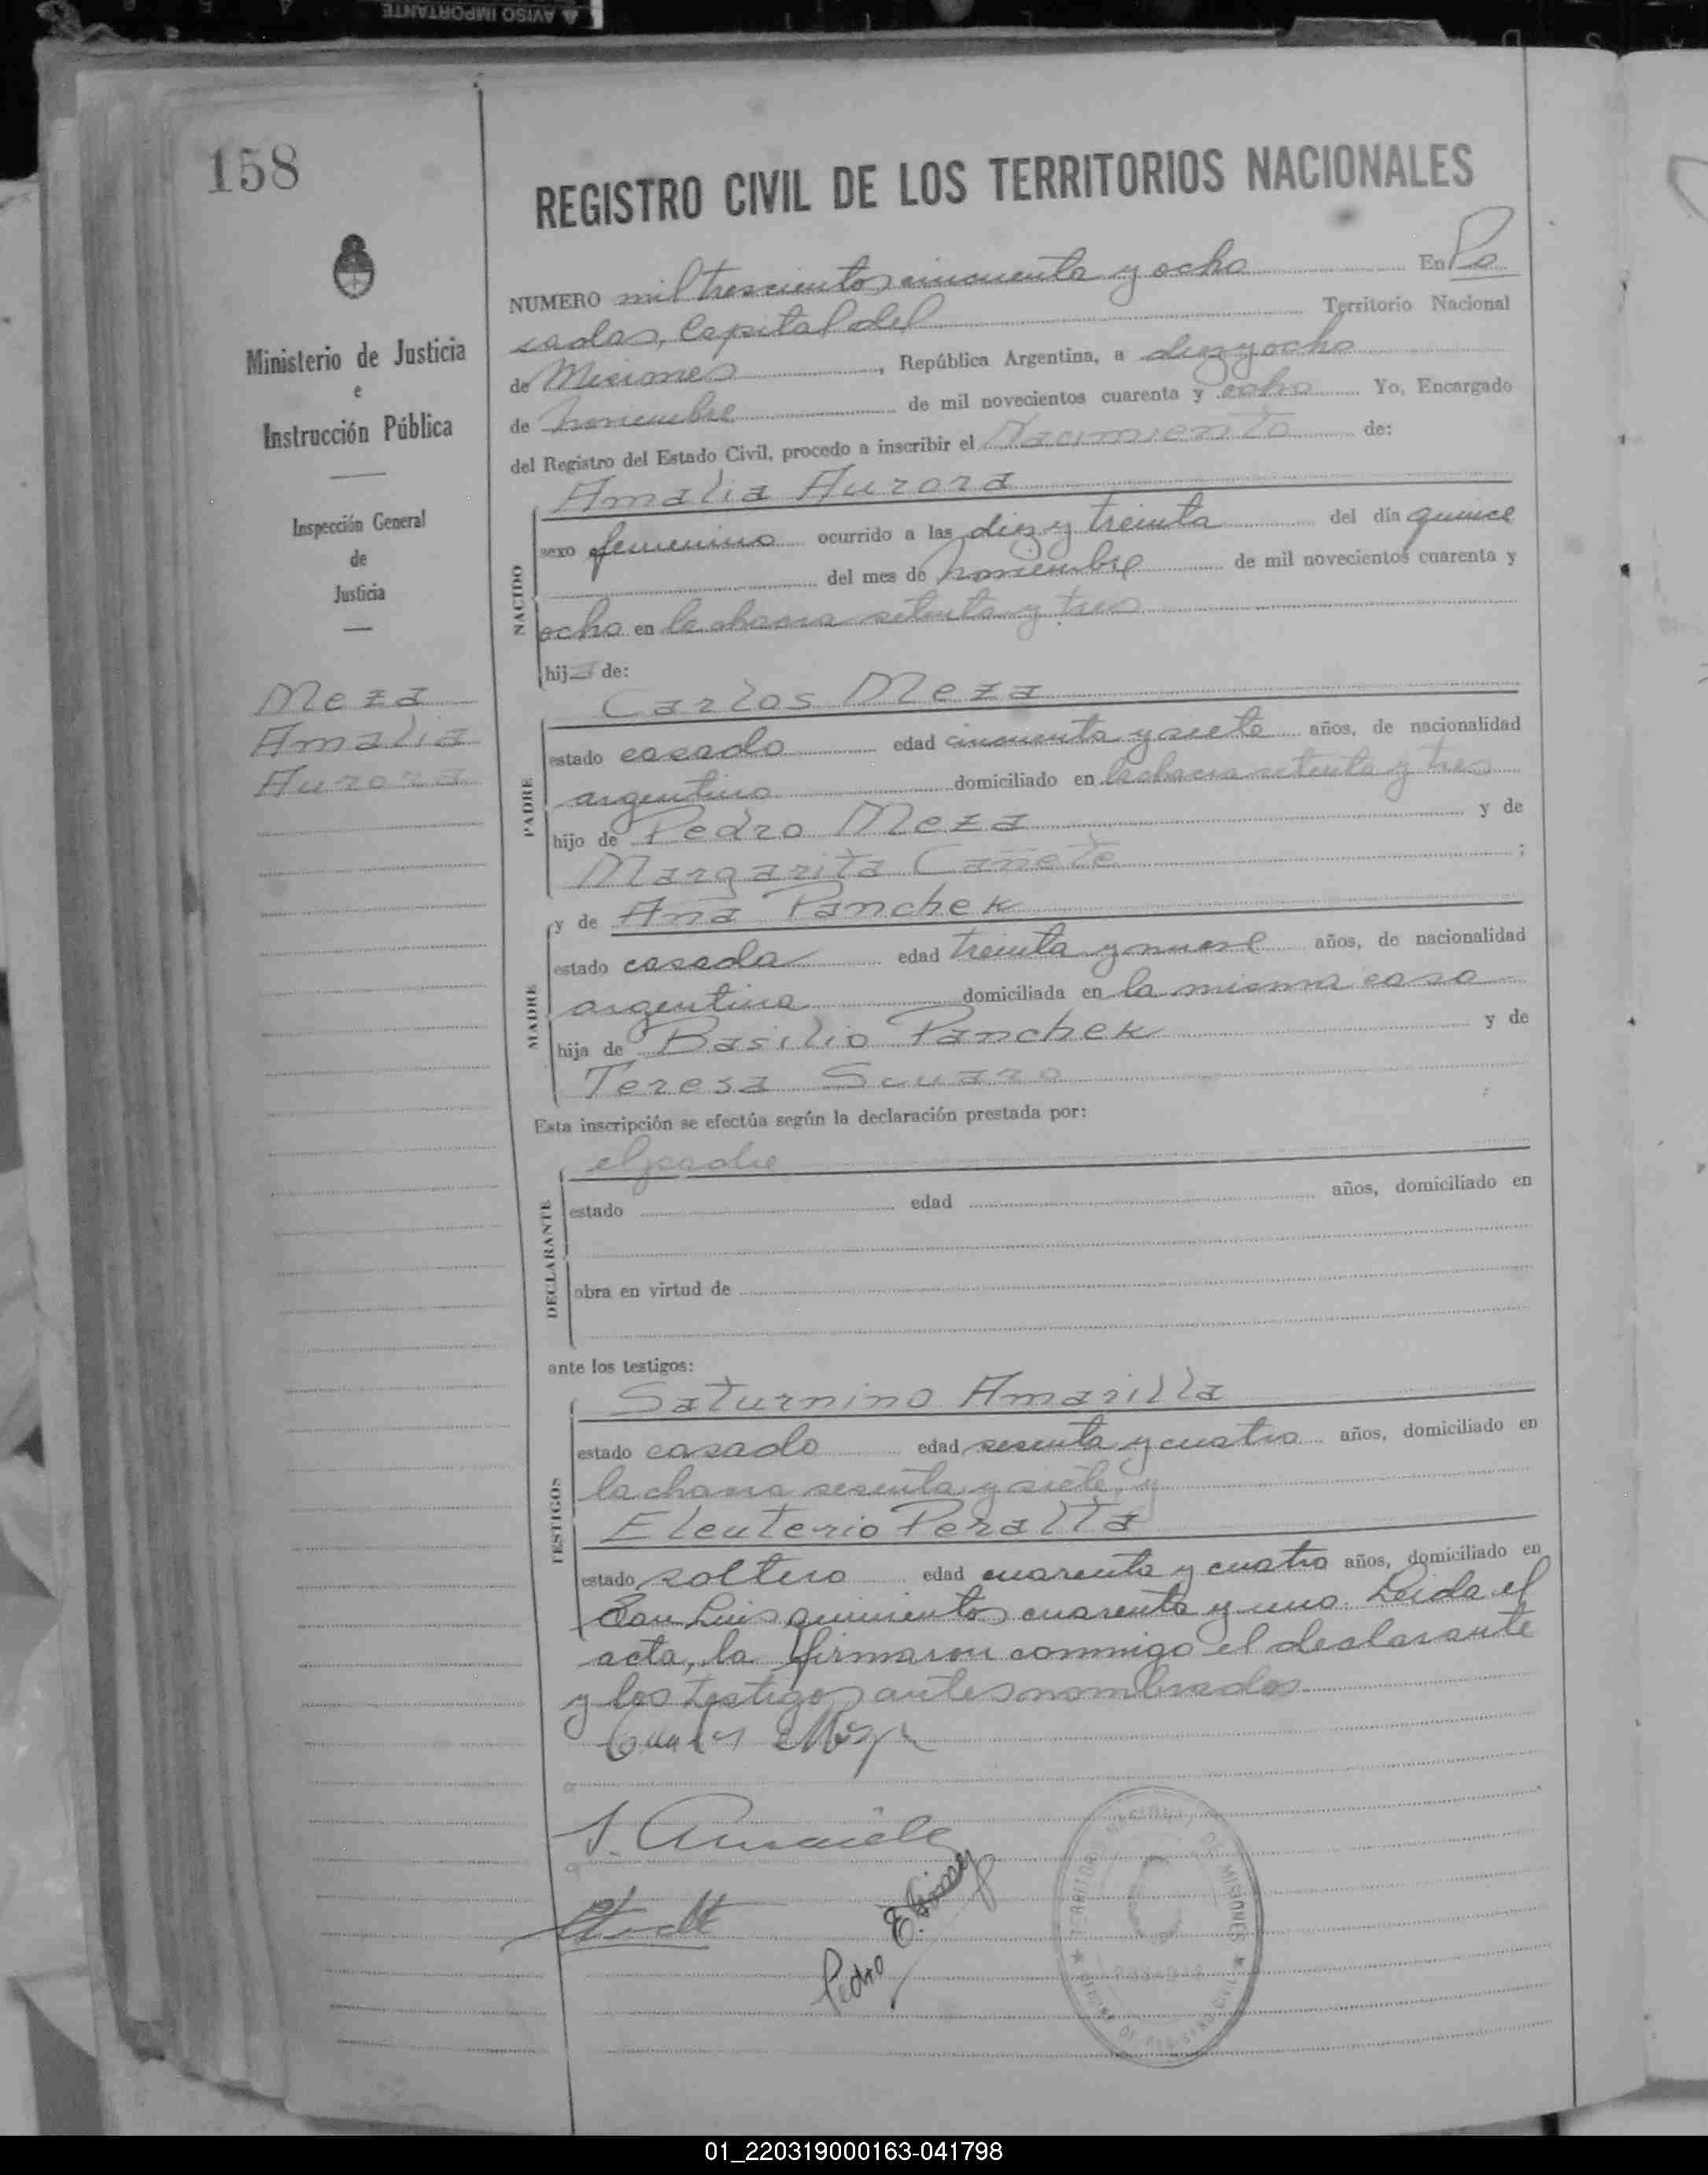 AVISO IMPORTANTE
158
REGISTRO CIVIL DE LOS TERRITORIOS NACIONALES
Ministerio de Justicia
e
Instrucción Pública
Inspección General
de
Justicia
Meza
Amalia
Aurora
NUMERO mil trescientos cincuenta y ocho En Po
sadas, Capital del Territorio Nacional
de Misiones, República Argentina, a diez y ocho
de noviembre de mil novecientos cuarenta y ocho Yo, Encargado
del Registro del Estado Civil, procedo a inscribir el Nacimiento de:
Amalia Aurora
NACIDO
sexo femenino ocurrido a las diez y treinta del día quince
del mes de noviembre de mil novecientos cuarenta y
ocho en la chacra setenta y tres
hija de:
Carlos Meza
PADRE
estado casado edad cincuenta y siete años, de nacionalidad
argentino domiciliado en la chacra setenta y tres
hijo de Pedro Meza y de
Margarita Cañete;
y de Ana Panchek
MADRE
estado casada edad treinta y nueve años, de nacionalidad
argentina domiciliada en la misma casa
hija de Basilio Panchek y de
Teresa Scuaro
Esta inscripción se efectúa según la declaración prestada por:
el padre
DECLARANTE
estado edad años, domiciliado en
obra en virtud de
ante los testigos:
Saturnino Amarilla
TESTIGOS
estado casado edad sesenta y cuatro años, domiciliado en
la chacra sesenta y siete, y
Eleuterio Peralta
estado soltero edad cuarenta y cuatro años, domiciliado en
San Luis quinientos cuarenta y uno. Leida el
acta, la firmaron conmigo el declarante
y los testigos antes nombrados.
Carlos Meza
S. Amarilla
Pedro E.
TERRITORIO NACIONAL DE MISIONES
POSADAS
01_220319000163-041798